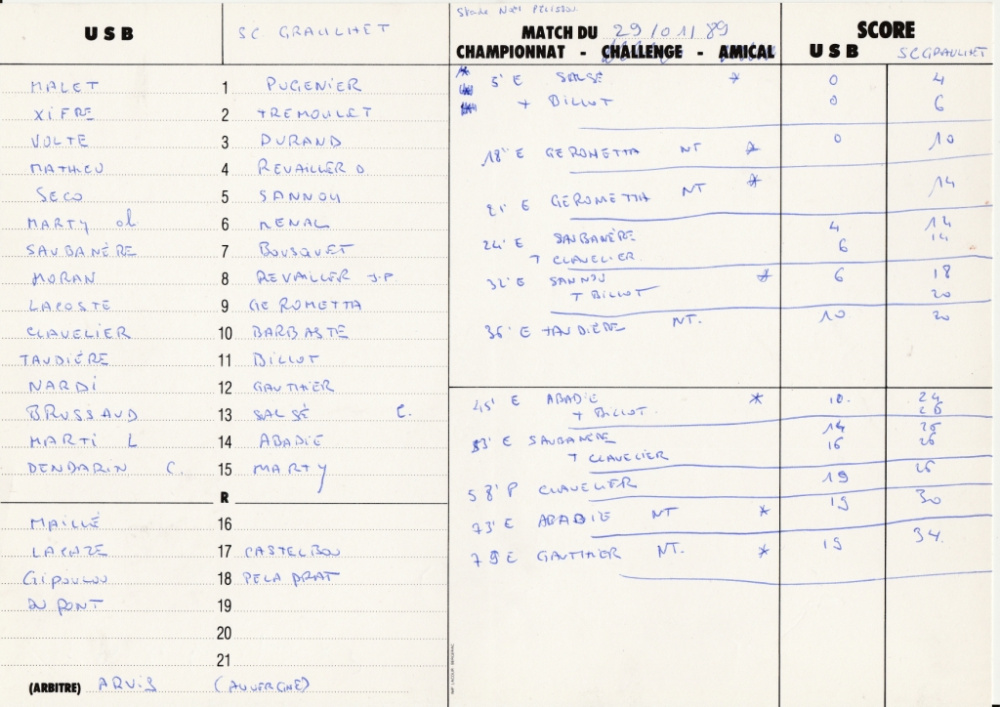 USB SC GRAULHET
MALET 1 PUGENIER
XIFRE 2 TREMOULET
VOLTE 3 DURAND
MATHIEU 4 REVAILLER D
SECO 5 SANNOU
MARTY ol 6 RENAL
SAUBANÈRE 7 BOUSQUET
MORAN 8 REVAILLER J.P.
LACOSTE 9 GEROMETTA
CLAVELIER 10 BARBASTE
TAUDIÉRE 11 BILLOT
NARDI 12 GAUTHIER
BRUSSAUD 13 SALSÉ C.
MARTI L 14 ABADIE
DENDARIN C. 15 MARTY
R
MAILLÉ 16
LACAZE 17 CASTELBOU
GIPOULOU 18 PELA PRAT
DUPONT 19
20
21
(ARBITRE) ARVIS (AUVERGNE)
Stade Noël Pélissou
MATCH DU 29/01/89 SCORE
CHAMPIONNAT - CHALLENGE - AMICAL USB SC GRAULHET
5' E SALSÉ * 0 4
+ BILLOT 0 6
18' E GEROMETTA NT * 0 10
21' E GEROMETTA NT * 14
24' E SAUBANÈRE 4 14
T CLAVELIER 6 14
32' E SANNOU * 6 18
T BILLOT 20
36' E TAUDIÈRE NT. 10 20
45' E ABADIE * 10. 24
+ BILLOT 26
53' E SAUBANÈRE 14 26
T CLAVELIER 16 26
58' P CLAVELIER 19 26
73' E ABADIE NT * 19 30
79 E GAUTHIER NT. * 19 34.